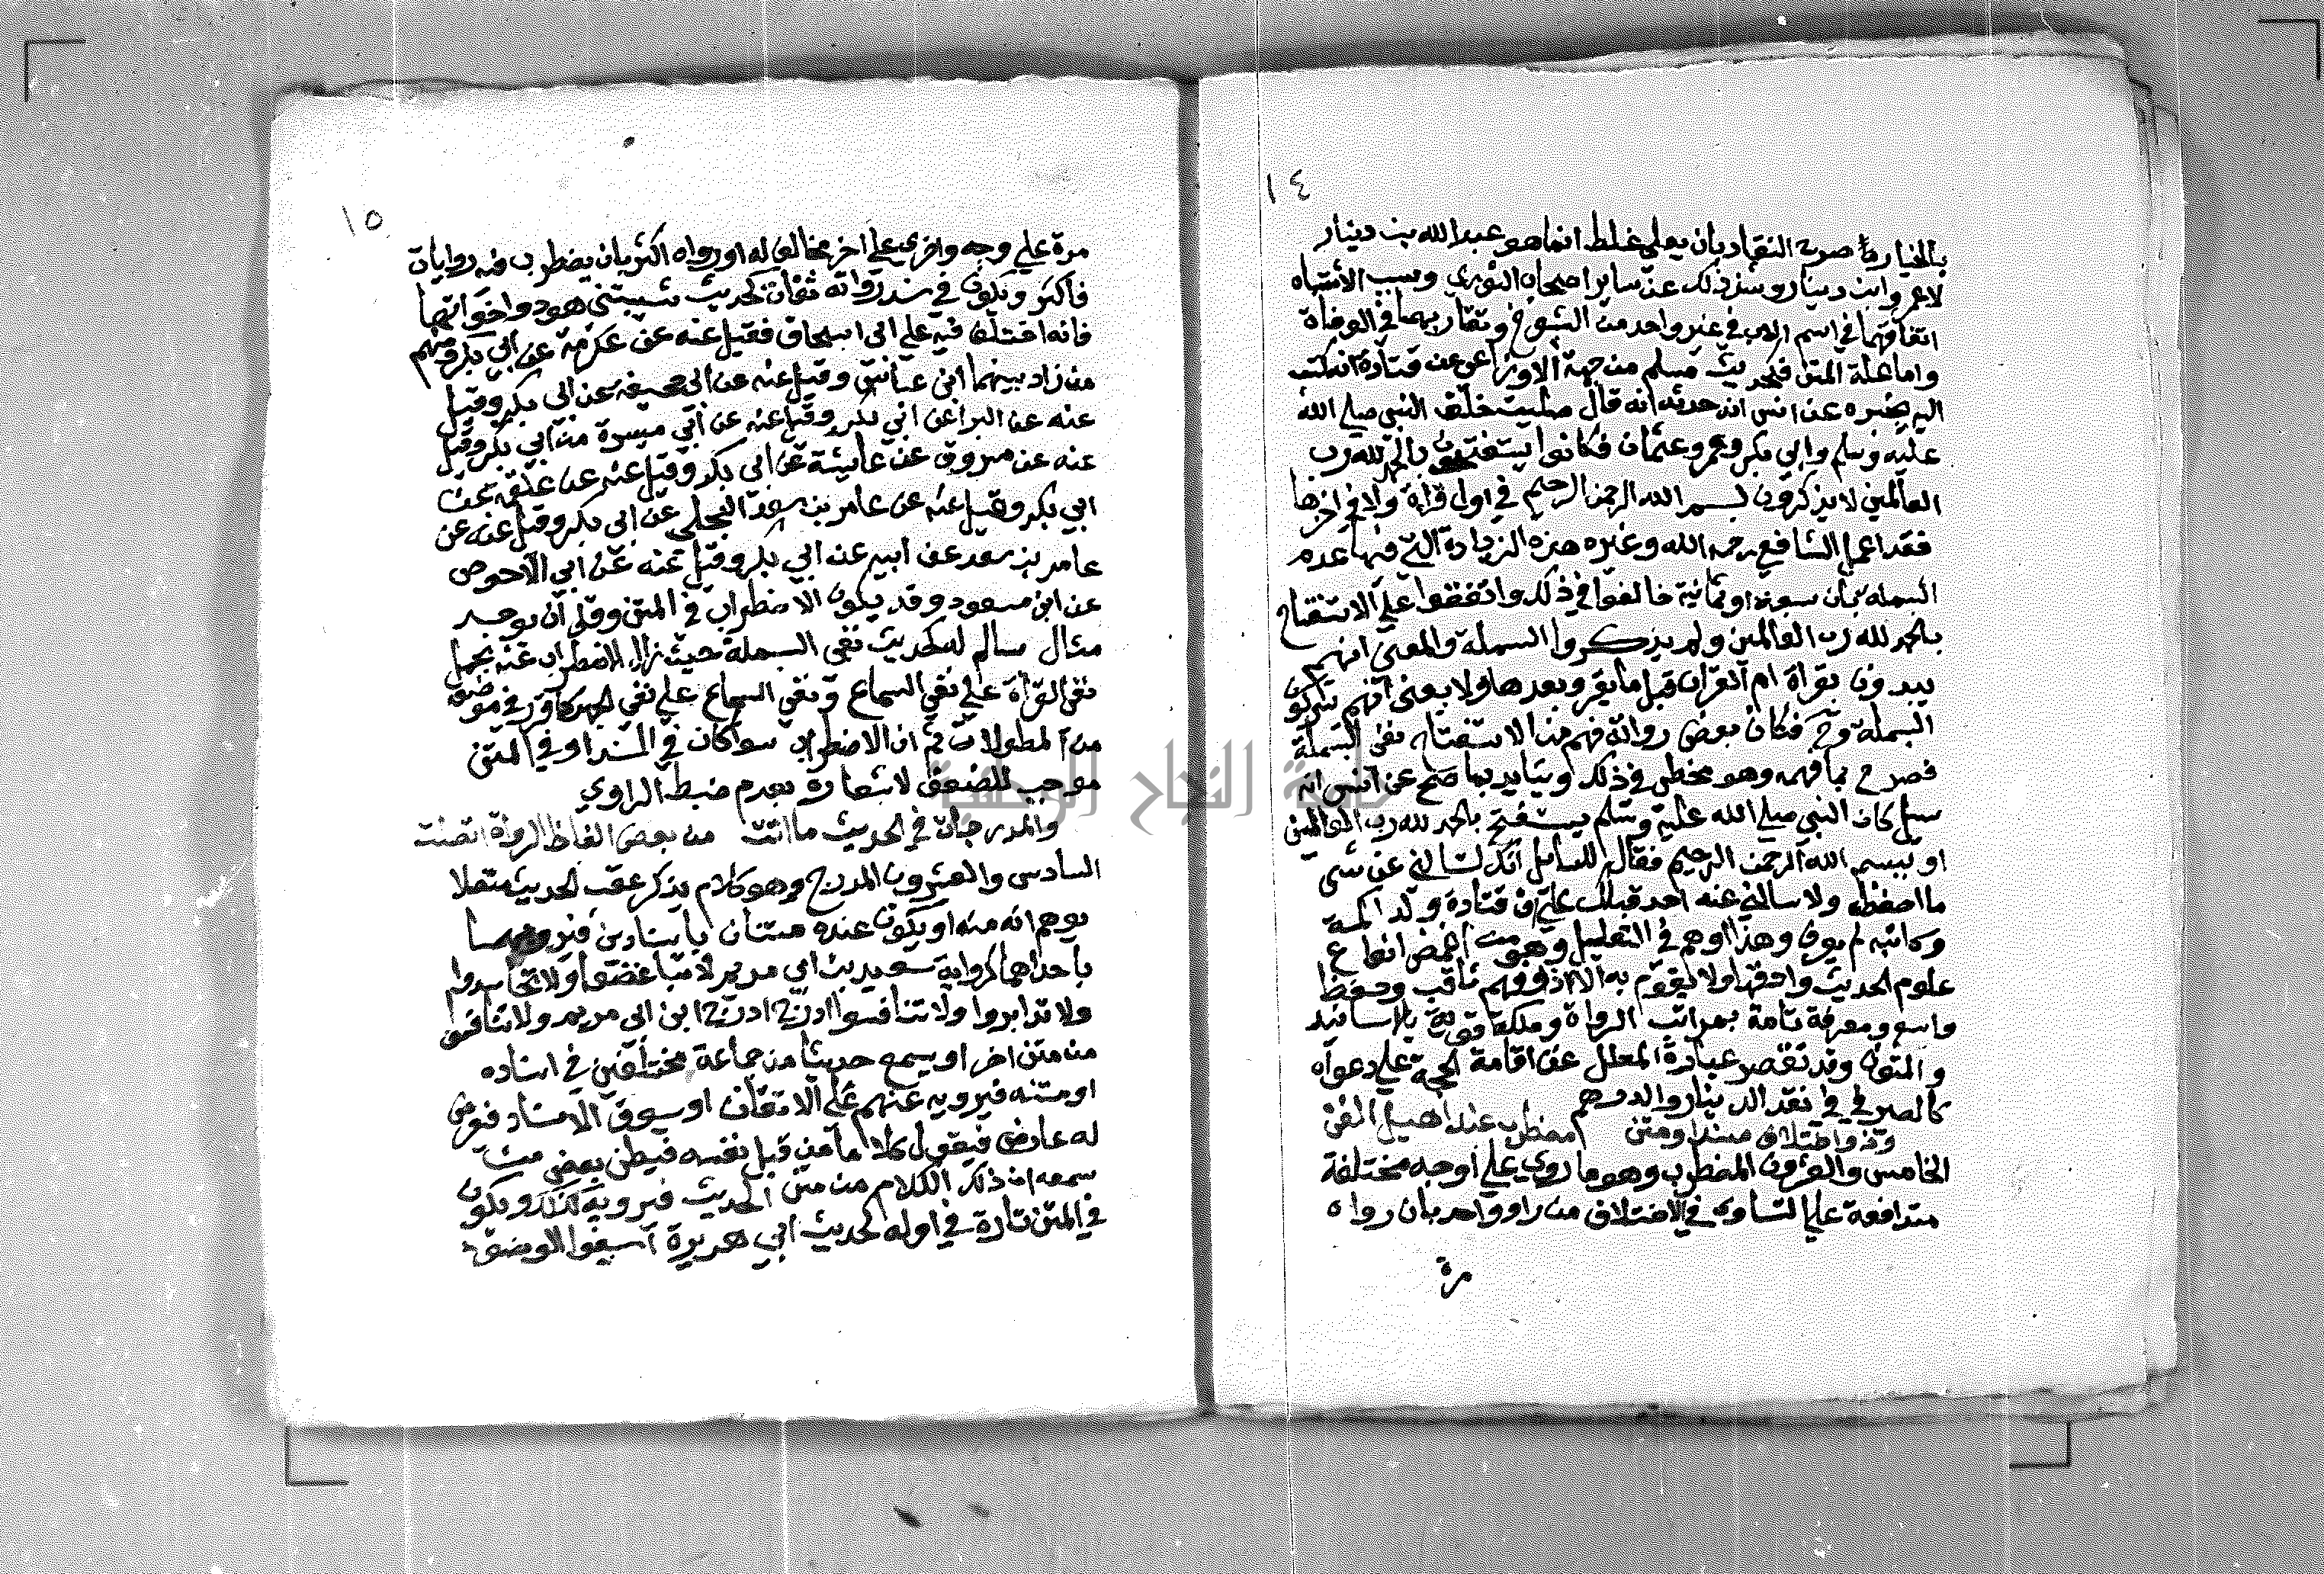 ١٤
بالخيار صرح النقاد بان يعلي غلط انما هو عبد الله بن دينار
لا عمرو ابن دينار وشذ بذلك عن ساير اصحاب الثوري وسبب الاشتباه
اتفاقهما في اسم الاب وفي غير واحد من الشيوخ وتقاربهما في الوفاة
واما علة المتن فكحديث مسلم من جهة الاوزاعي عن قتادة انه كتب
اليه يخبره عن انس انه حدثه انه قال صليت خلف النبي صلي الله
عليه وسلم وابي بكر وعمر وعثمان فكانوا يستفتحون بالحمد لله رب
العالمين لا يذكرون بسم الله الرحمن الرحيم في اول قراة ولا في اخرها
فقد اعل الشافعي رحمه الله وغيره هذه الزيادة التي فيها عدم
البسملة بان سبعة او ثمانية خالفوا في ذلك واتفقوا علي الاستفتاح
بالحمد لله رب العالمين ولم يذكروا البسملة والمعني انهم
يبدون بقراة ام القران قبل ما يقرو بعدها ولا يعني انهم يتركون
البسملة وح فكان بعض رواته فهم من الاستفتاح نفي البسملة
فصرح بما فهمه وهو مخطي في ذلك ويتايد بما صح عن انس انه
سيل كان النبي صلي الله عليه وسلم يستفتح بالحمد لله رب العالمين
او ببسم الله الرحمن الرحيم فقال للسايل انك لتسالني عن شي
ما احفظه ولا سالني عنه احد قبلك علي ان قتادة ولد اكمه
وكاتبه لم يعرف وهذا اوهم في التعليل وهو من اغمض انواع
علوم الحديث وادقها ولا يقوم به الا ذو فهم ثاقب وحفظ
واسع ومعرفة تامة بمراتب الرواة وملكة قوية بالاسانيد
والمتون وقد تقصر عبارة المعلل عن اقامة الحجة علي دعواه
كالصيرفي في نقد الدينار والدرهم
وذو اختلاف سند او متن مضطرب عند اهيل الفن
الخامس والعشرون المضطرب وهو ما روي علي اوجه مختلفة
متدافعة علي التساوي في الاختلاف من راو واحد بان رواه
مرة
١٥
مرة علي وجه واخري علي اخر مخالف له او رواه اكثر بان يضطرب فيه روايات
فاكثر ويكون في سند رواته ثقات كحديث شيبتني هود واخواتها
فانه اختلف فيه علي ابي اسحاق فقيل عنه عن عكرمة عن ابي بكر ومنهم
من زاد بينهما ابن عباس وقيل عنه عن ابي جحيفة عن ابي بكر وقيل
عنه عن البرا عن ابي بكر وقيل عنه عن ابي ميسرة عن ابي بكر وقيل
عنه عن مسروق عن عايشة عن ابي بكر وقيل عنه عن علقمة عن
ابي بكر وقيل عنه عن عامر بن سعد البجلي عن ابي بكر وقيل عنه عن
عامر بن سعد عن ابيه عن ابي بكر وقيل عنه عن ابي الاحوص
عن ابن مسعود وقد يكون الاضطراب في المتن وقل ان يوجد
مثال سالم له كحديث نفي البسملة حيث زال الاضطراب عنه بحمل
نفي القراة علي نفي السماع ونفي السماع علي نفي الجهر كما قرر في موضعه
من المطولات ثم ان الاضطراب سوا كان في السند او في المتن
موجب للضعف لاشعاره بعدم ضبط الراوي
والمدرجات في الحديث ما اتت من بعض الفاظ الرواة اتصلت
السادس والعشرون المدرج وهو كلام يذكر عقب الحديث متصلا
يوهم انه منه او يكون عنده متنان باسنادين فيرويهما
باحداهما كرواية سعيد بن ابي مريم لا تباغضوا ولا تحاسدوا
ولا تدابروا ولا تنافسوا ادرج ابن ابي مريم ولا تنافسوا
من متن اخر او يسمع حديثا من جماعة مختلفين في اسناده
او متنه فيرويه عنهم علي الاتفاق او يسوق الاسناد فيعرض
له عارض فيقول كلاما من قبل نفسه فيظن بعض من
سمعه ان ذلك الكلام من متن الحديث فيرويه كذلك ويكون
في المتن تارة في اوله كحديث ابي هريرة اسبغوا الوضوء